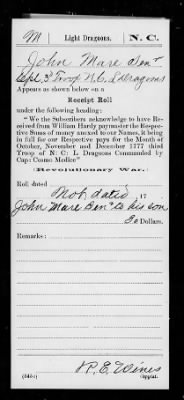 M | Light Dragoons. | N. C.
John Mare Senr
Sepl 3d Troop N.C. L Dragoons
Appears as shown below on a
Receipt Roll
under the following heading:
"We the Subscribers acknowledge to have Re-
ceived from William Hardy paymaster the Respec-
tive Sums of money annexed to our Names, it being
in full for our Respective pays for the Month of
October, November and December 1777 third
Troop of N: C: L Dragoons Commanded by
Cap: Cosmo Medice"
(Revolutionary War.)
Roll dated Not dated, 17
John Mare Senr to his son
Dollars.
Remarks:
R. E. Wines
(646c) Copyist.